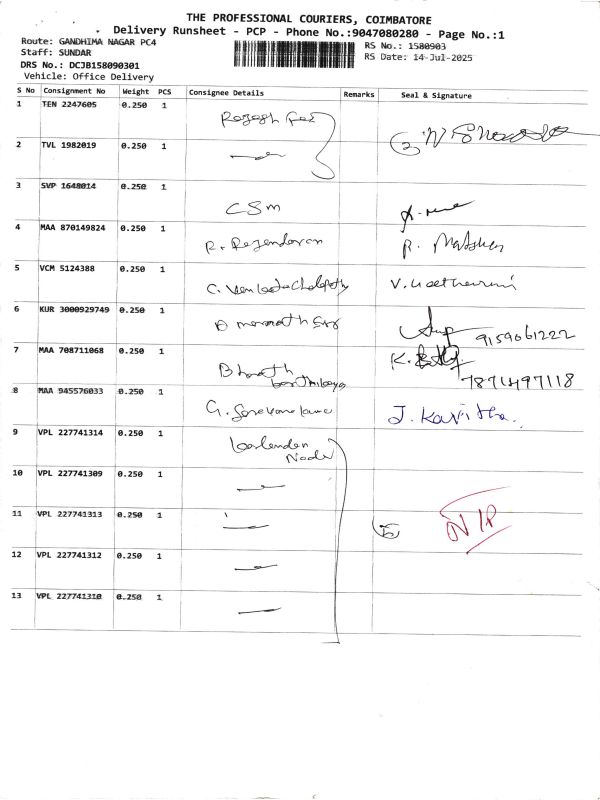 THE PROFESSIONAL COURIERS, COIMBATORE
Delivery Runsheet - PCP - Phone No.:9047080280 - Page No.:1
Route: GANDHIMA NAGAR PC4
RS No.: 1580903
Staff: SUNDAR
RS Date: 14-Jul-2025
DRS No.: DCJB158090301
Vehicle: Office Delivery
S No Consignment No Weight PCS Consignee Details Remarks Seal & Signature
1 TEN 2247605 0.250 1
2 TVL 1982019 0.250 1
3 SVP 1648014 0.250 1 CSM
4 MAA 870149824 0.250 1 R. Rajendaran R.
5 VCM 5124388 0.250 1 C. V.
6 KUR 3000929749 0.250 1 9159061222
7 MAA 708711068 0.250 1 Bharath K.
7871497118
8 MAA 945576033 0.250 1 G. J. Kavitha.
9 VPL 227741314 0.250 1
10 VPL 227741309 0.250 1
11 VPL 227741313 0.250 1 5 N/P
12 VPL 227741312 0.250 1
13 VPL 227741310 0.250 1